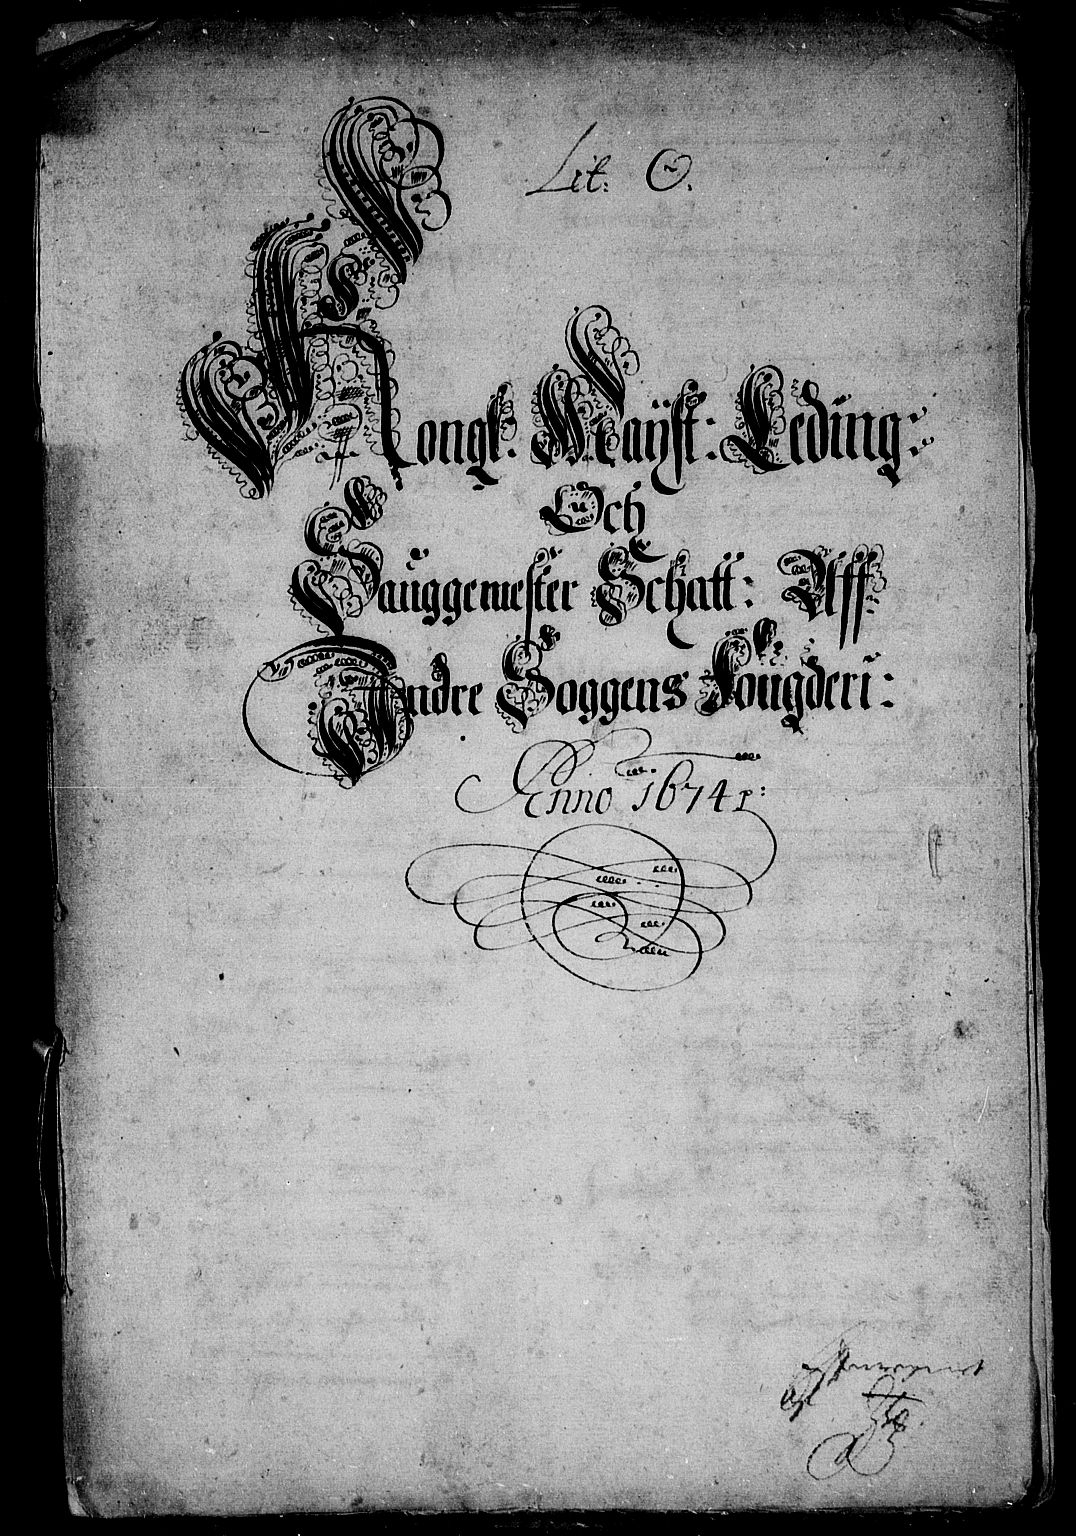 Lit: O.
Kongl: Maÿst: Leding:
Och
Sauggemester Schatt: Aff
Andre Soggens Fougderi:
Anno 1674